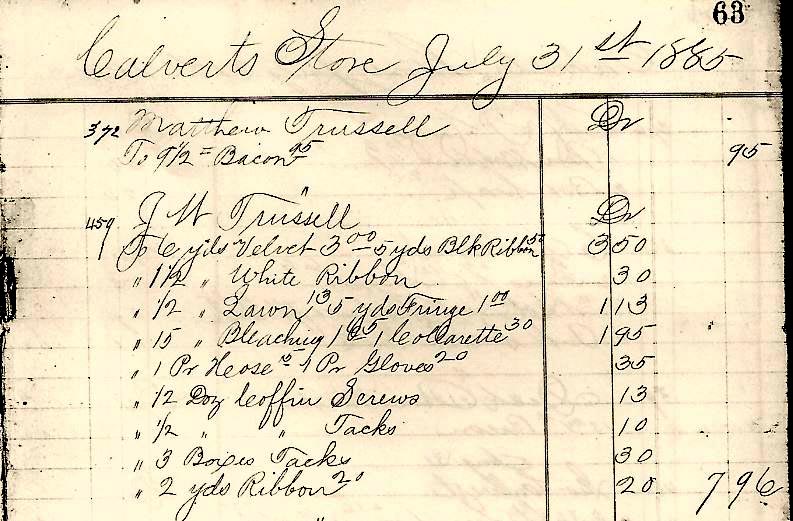 63
Calverts Store July 31st 1885
372 Matthew Trussell Dr
To 9 1/2 = Bacon 95 95
459 J W Trussell Dr
To 6 yds Velvet 3 00 5 yds Blk Ribbon 50 3 50
" 1 1/2 " White Ribbon 30
" 1/2 " Lawn 13 5 yds Fringe 1 00 1 13
" 15 " Bleaching 1 65 1 Collarette 30 1 95
" 1 Pr Hose 15 1 Pr Gloves 20 35
" 1/2 Doz Coffin Screws 13
" 1/2 " " Tacks 10
" 3 Boxes Tacks 30
" 2 yds Ribbon 20 20 7 96